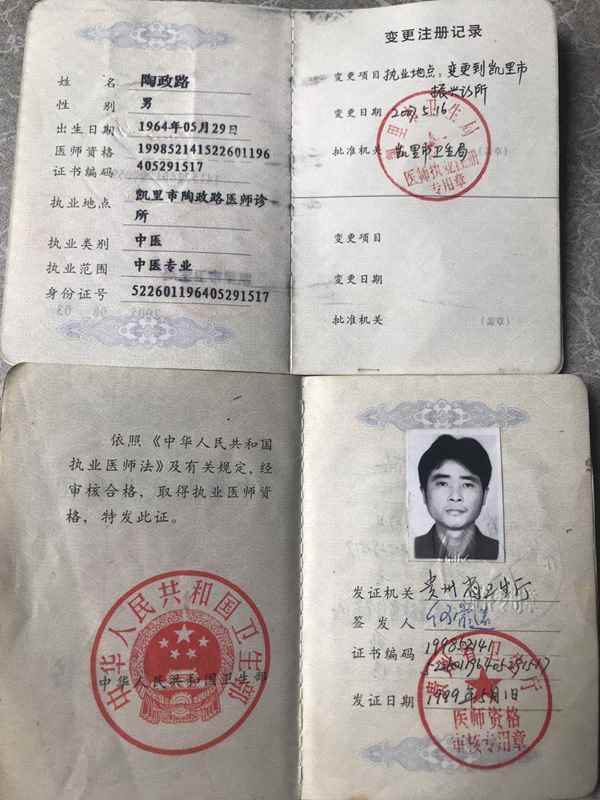 姓 名 陶政路
性 别 男
出生日期 1964年05月29日
医师资格 199852141522601196
证书编码 405291517
执业地点 凯里市陶政路医师诊
所
执业类别 中医
执业范围 中医专业
身份证号 522601196405291517
变更注册记录
变更项目 执业地点:变更到凯里市
振兴诊所
变更日期 2007.5.16
批准机关 凯里市卫生局
凯里市卫生局
医师执业注册
专用章
变更项目
变更日期
批准机关
依照《中华人民共和国
执业医师法》及有关规定,经
审核合格,取得执业医师资
格,特发此证。
中华人民共和国卫生部
中华人民共和国卫生部
发证机关 贵州省卫生厅
签 发 人
证书编码 199852141
522601196405291517
发证日期 1999年5月1日
贵州省卫生厅
医师资格
审核专用章